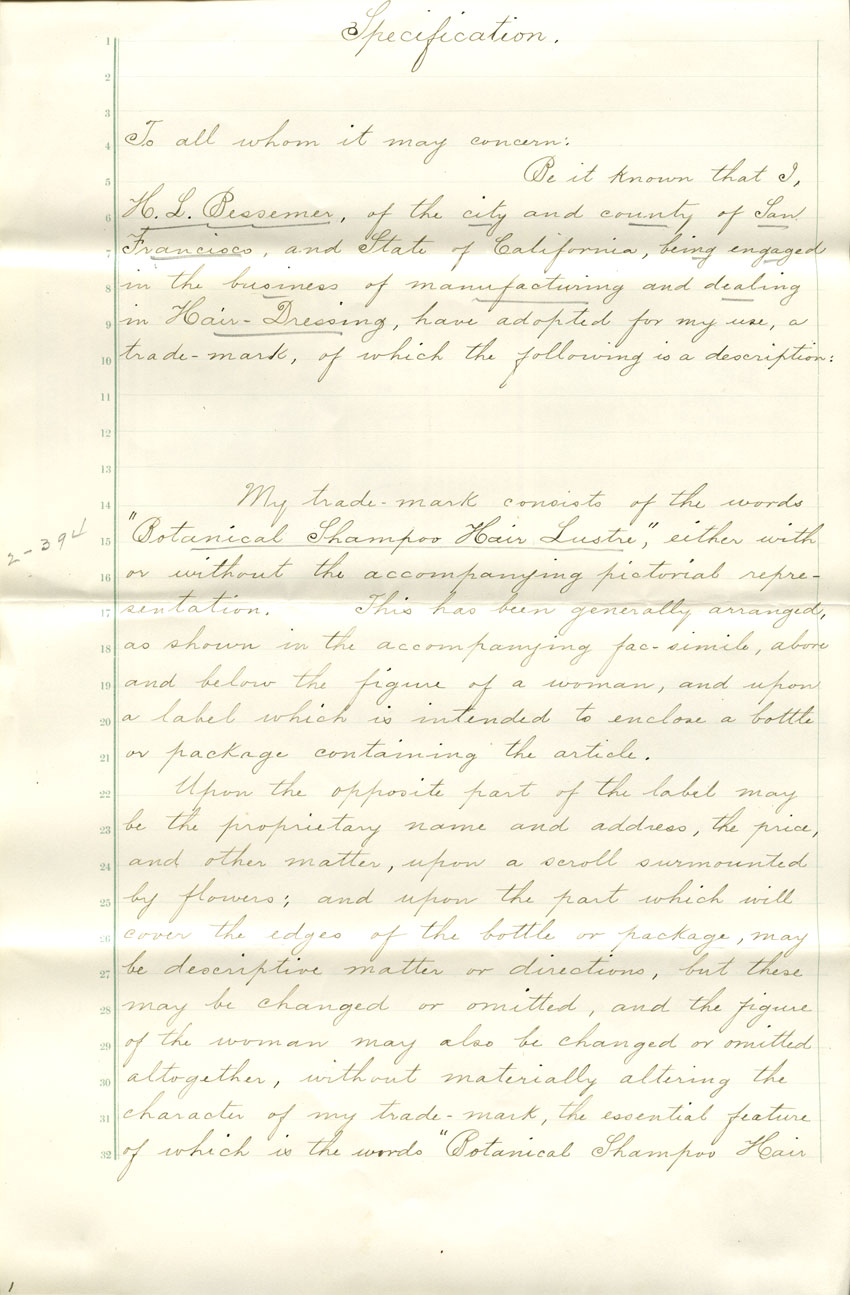 Specification.
1
2
3
4 To all whom it may concern:
5 Be it known that I,
6 H. L. Bessemer, of the city and county of San
7 Francisco, and State of California, being engaged
8 in the business of manufacturing and dealing
9 in Hair-Dressing, have adopted for my use, a
10 trade-mark, of which the following is a description:
11
12
13
14 My trade-mark consists of the words
2-394
15 "Botanical Shampoo Hair Lustre", either with
16 or without the accompanying pictorial repre-
17 sentation. This has been generally arranged,
18 as shown in the accompanying fac-simile, above
19 and below the figure of a woman, and upon
20 a label which is intended to enclose a bottle
21 or package containing the article.
22 Upon the opposite part of the label may
23 be the proprietary name and address, the price,
24 and other matter, upon a scroll surmounted
25 by flowers; and upon the part which will
26 cover the edges of the bottle or package, may
27 be descriptive matter or directions, but these
28 may be changed or omitted, and the figure
29 of the woman may also be changed or omitted
30 altogether, without materially altering the
31 character of my trade-mark, the essential feature
32 of which is the words "Botanical Shampoo Hair
1